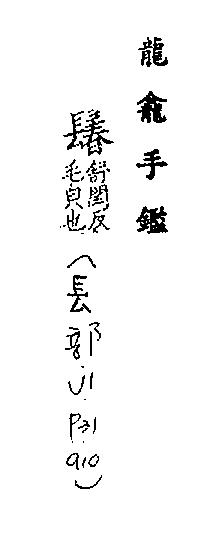 龍龕手鑑
舒閏反
毛皃也
(镸部.V1.P31.a10)